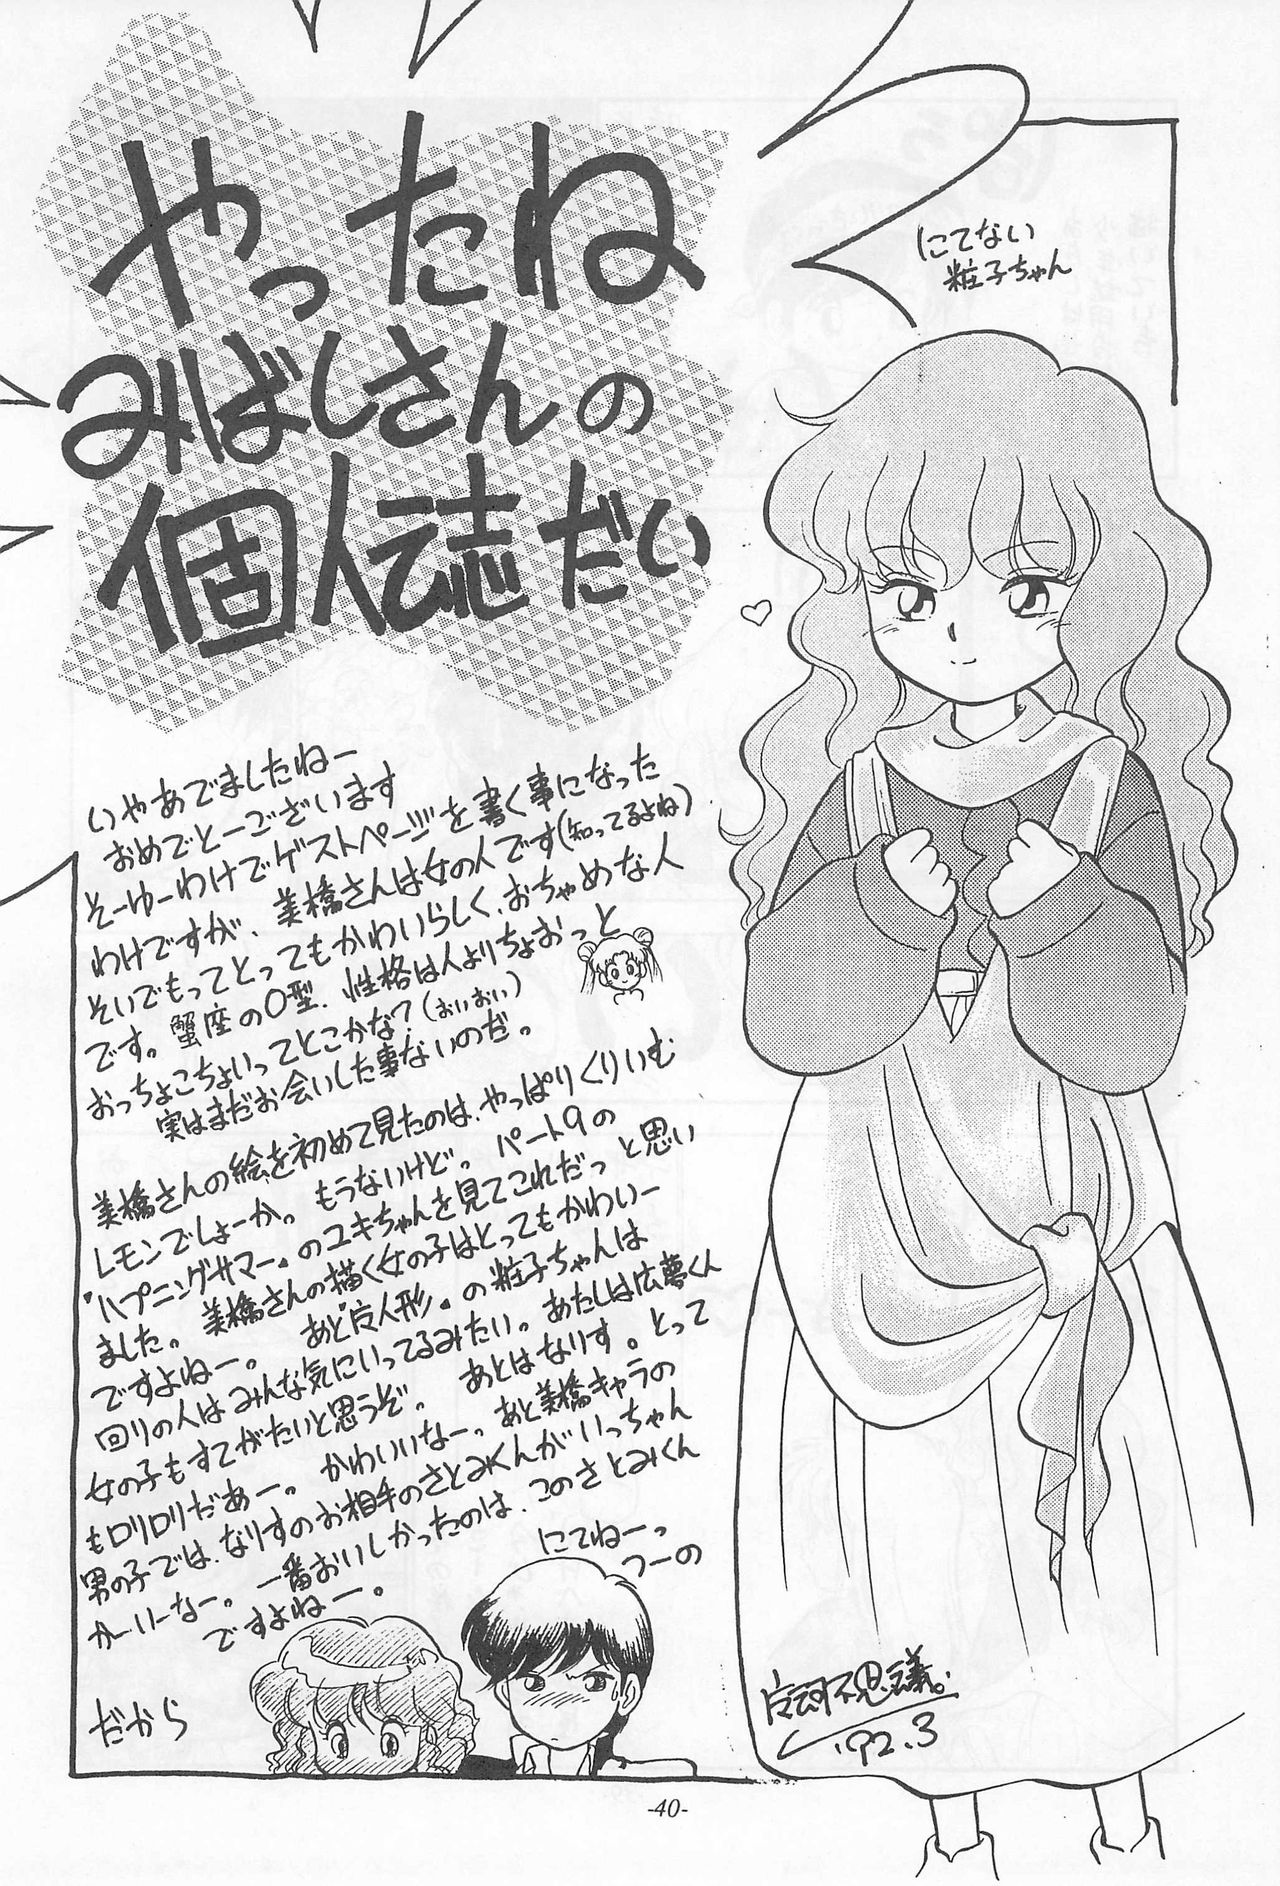 やったね
みばしさんの
個人誌だい
にてない
粧子ちゃん
いやあでましたねー
おめでとーございます
そーゆーわけでゲストページを書く事になった
わけですが、美橋さんは女の人です(知ってるよね)
そいでもってとってもかわいらしく、おちゃめな人
です。蟹座のO型、性格は人よりちょおっと
おっちょこちょいってとこかな?(おいおい)
実はまだお会いした事ないのだ。
美橋さんの絵を初めて見たのは、やっぱりくりいむ
レモンでしょーか。もうないけど。パート9の
『ハプニングサマー』のユキちゃんを見てこれだっと思い
ました。美橋さんの描く女の子はとってもかわいー
ですよねー。あと『人形』の粧子ちゃんは
回りの人はみんな気にいってるみたい。あたしは広夢くん
女の子もすてがたいと思うぞ。あとはなりす。とって
もロリロリだあー。かわいいなーっ。あと美橋キャラの
男の子では、なりすのお相手のさとみくんがいっちゃん
かーいーなー。一番おいしかったのは、このさとみくん
ですよねー。
にてねーっ
つーの
だから
不思議。
'92.3
-40-